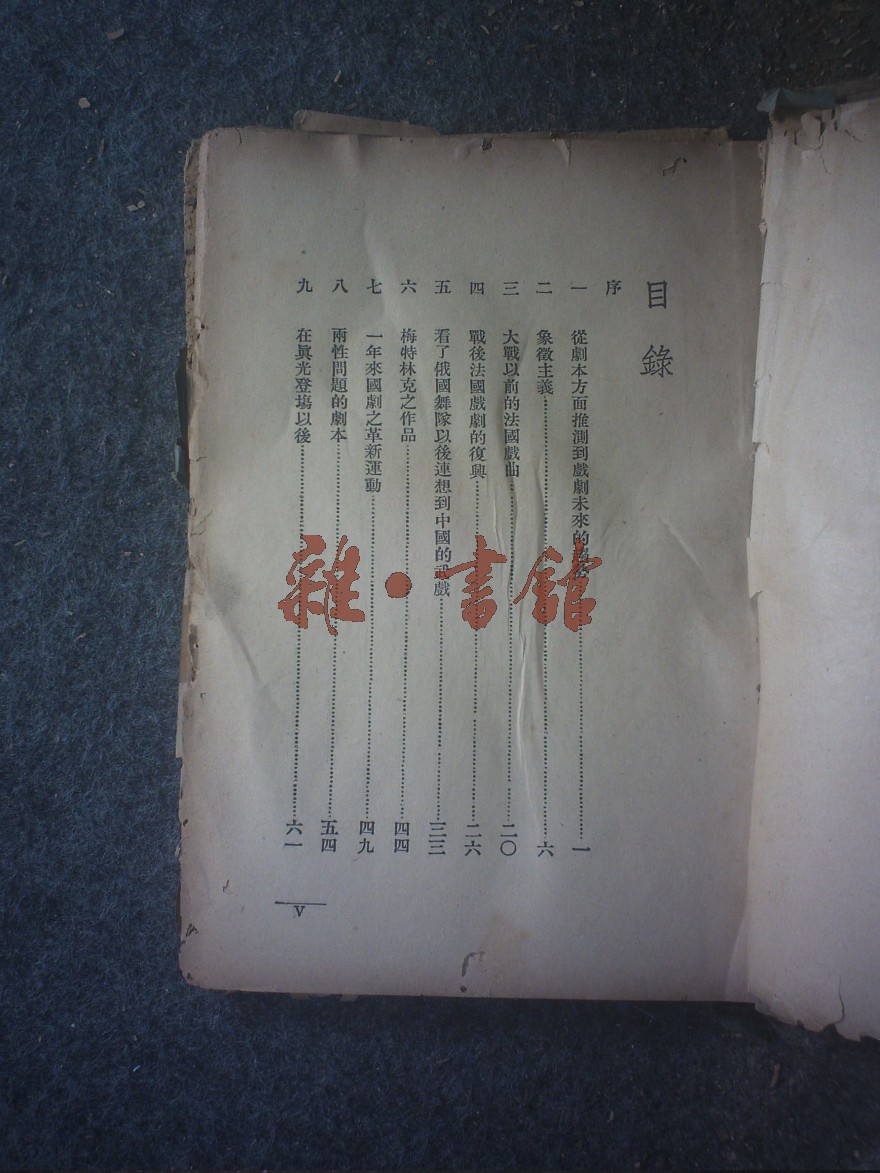 目錄
序
一 從劇本方面推測到戲劇未來的 一
二 象徵主義 六
三 大戰以前的法國戲曲 二〇
四 戰後法國戲劇的復興 二六
五 看了俄國舞隊以後連想到中國的武戲 三三
六 梅特林克之作品 四四
七 一年來國劇之革新運動 四九
八 兩性問題的劇本 五四
九 在眞光登塲以後 六一
V
雜·書館